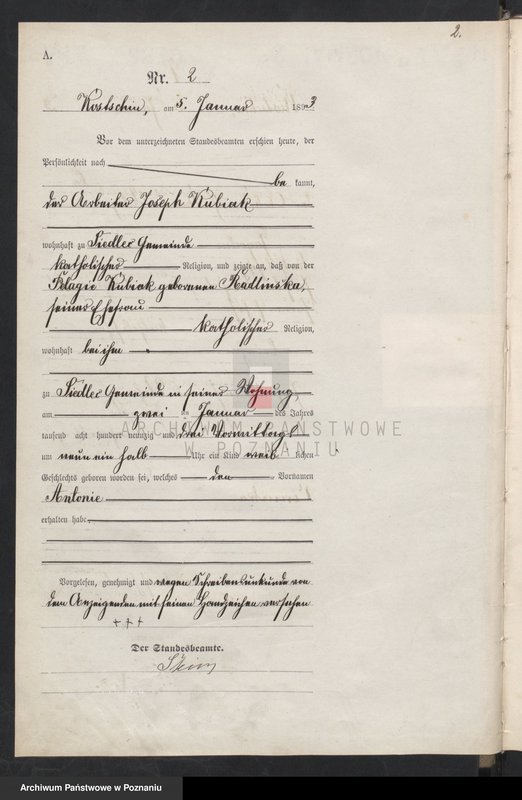 2.
A.
Nr. 2
Kostschin, am 5. Januar 1893
Vor dem unterzeichneten Standesbeamten erschien heute, der
Persönlichkeit nach
be kannt,
der Arbeiter Joseph Kubiak
wohnhaft zu Siedlec Gemeinde
katholischer Religion, und zeigte an, daß von der
Pelagie Kubiak geborenen Kadlinska,
seiner Ehefrau
katholischer Religion,
wohnhaft bei ihm
zu Siedlec Gemeinde in seiner Wohnung,
am zwei ten Januar des Jahres
tausend acht hundert neunzig und drei Vormittags
um neun ein halb Uhr ein Kind weib lichen
Geschlechts geboren worden sei, welches den Vornamen
Antonie
erhalten habe.
Vorgelesen, genehmigt und wegen Schreibensunkunde von
dem Anzeigenden mit seinen Handzeichen versehen
+++
Der Standesbeamte.
ARCHIWUM PAŃSTWOWE
W POZNANIU
Archiwum Państwowe w Poznaniu